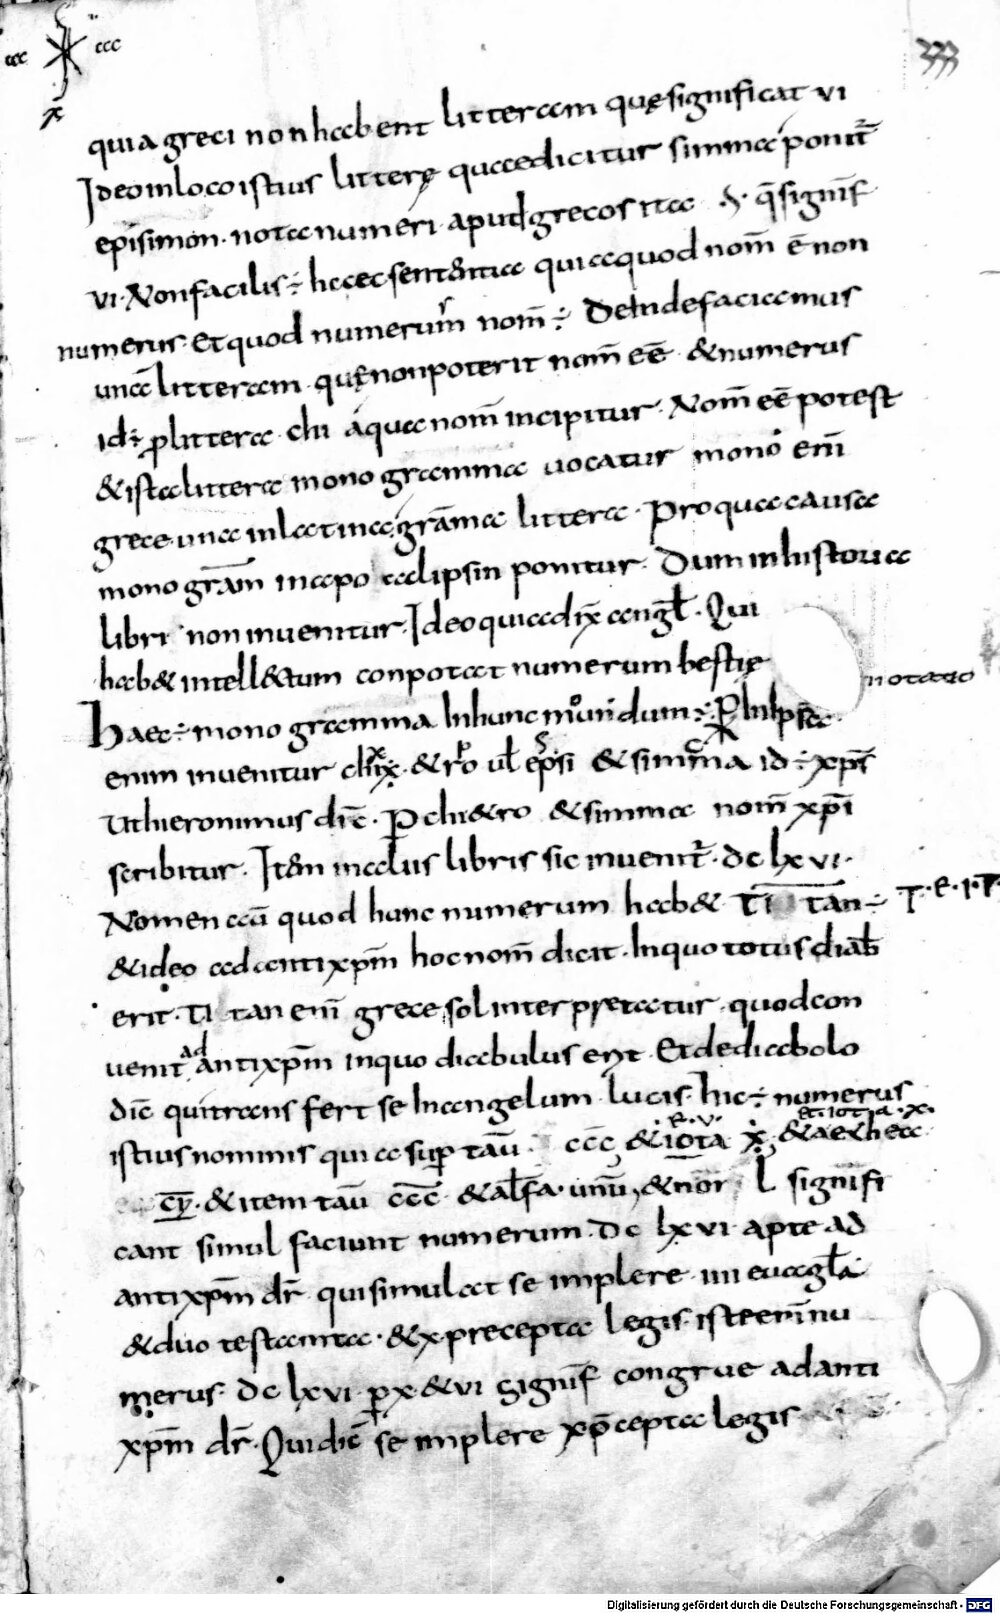 ccc ccc
333
quia greci non habent litteram quę significat vi
Ideo in loco istius litterę quae dicitur simma ponit᷑
episimon · nota numeri · apud grecos ita · q̄ signif̄
vi · Non facilis ÷ haec sententia quia quod nom̄ ē non
numerus · et quod numerum nom̄ ÷ Deinde faciamus
unā litteram · quę non poterit nom̄ eē & numerus
id ÷ p litera · chi a qua nom̄ incipitur · Nom̄ eē potest
& ista littera monogramma uocatur mono eni̅
grece · una in latina grāma littera · Pro qua causa
monogram̄ in apo calipsin ponitur · Dum in historia
libri non inuenitur · Ideo quia dix̄ angl̄ · Qui
hab& intell&um conpotat numerum bestię
notatio
Haec ÷ monogramma In hunc mundum ÷ In ipsa
enim inuenitur chi x · & ro ul̄ epsi & simma id ÷ xp̄s
Ut hieronimus dic̄ · P chi & ro & simma nom̄ xp̄i
scribitur · Item in aliis libris sic inuenit᷑ · dc lxvi ·
Nomen aū quod hunc numerum hab& TI tan ÷ T · E · I · T
& ideo ad antixp̄m hoc nom̄ dicit · In quo totus diab̄
erit · TI tan eni̅ grece sol interpretatur · quod con
uenit ad antixp̄m in quo diabulus erit · Et de diabolo
dic̄ qui trans fert se In angelum lucis · hic ÷ numerus
et iota · x ·
istius nominis quia sup̄ tāu ccc & iota x & a& h&a
& item tāu c̄c̄c̄ & alfa · unū & nōr L signifi
cant simul faciunt numerum · Dc lxvi · apte ad
antixp̄m dr̄ qui simulat se implere · iiii euagl̄a
& duo testamta · & x · precepta legis · iste eni̅ nu
merus · dc lxvi · p x & vi signif̄ congrue ad anti
xp̄m dr̄ · Qui dic̄ se implere x p̄cepta legis
Digitalisierung gefördert durch die Deutsche Forschungsgemeinschaft - DFG